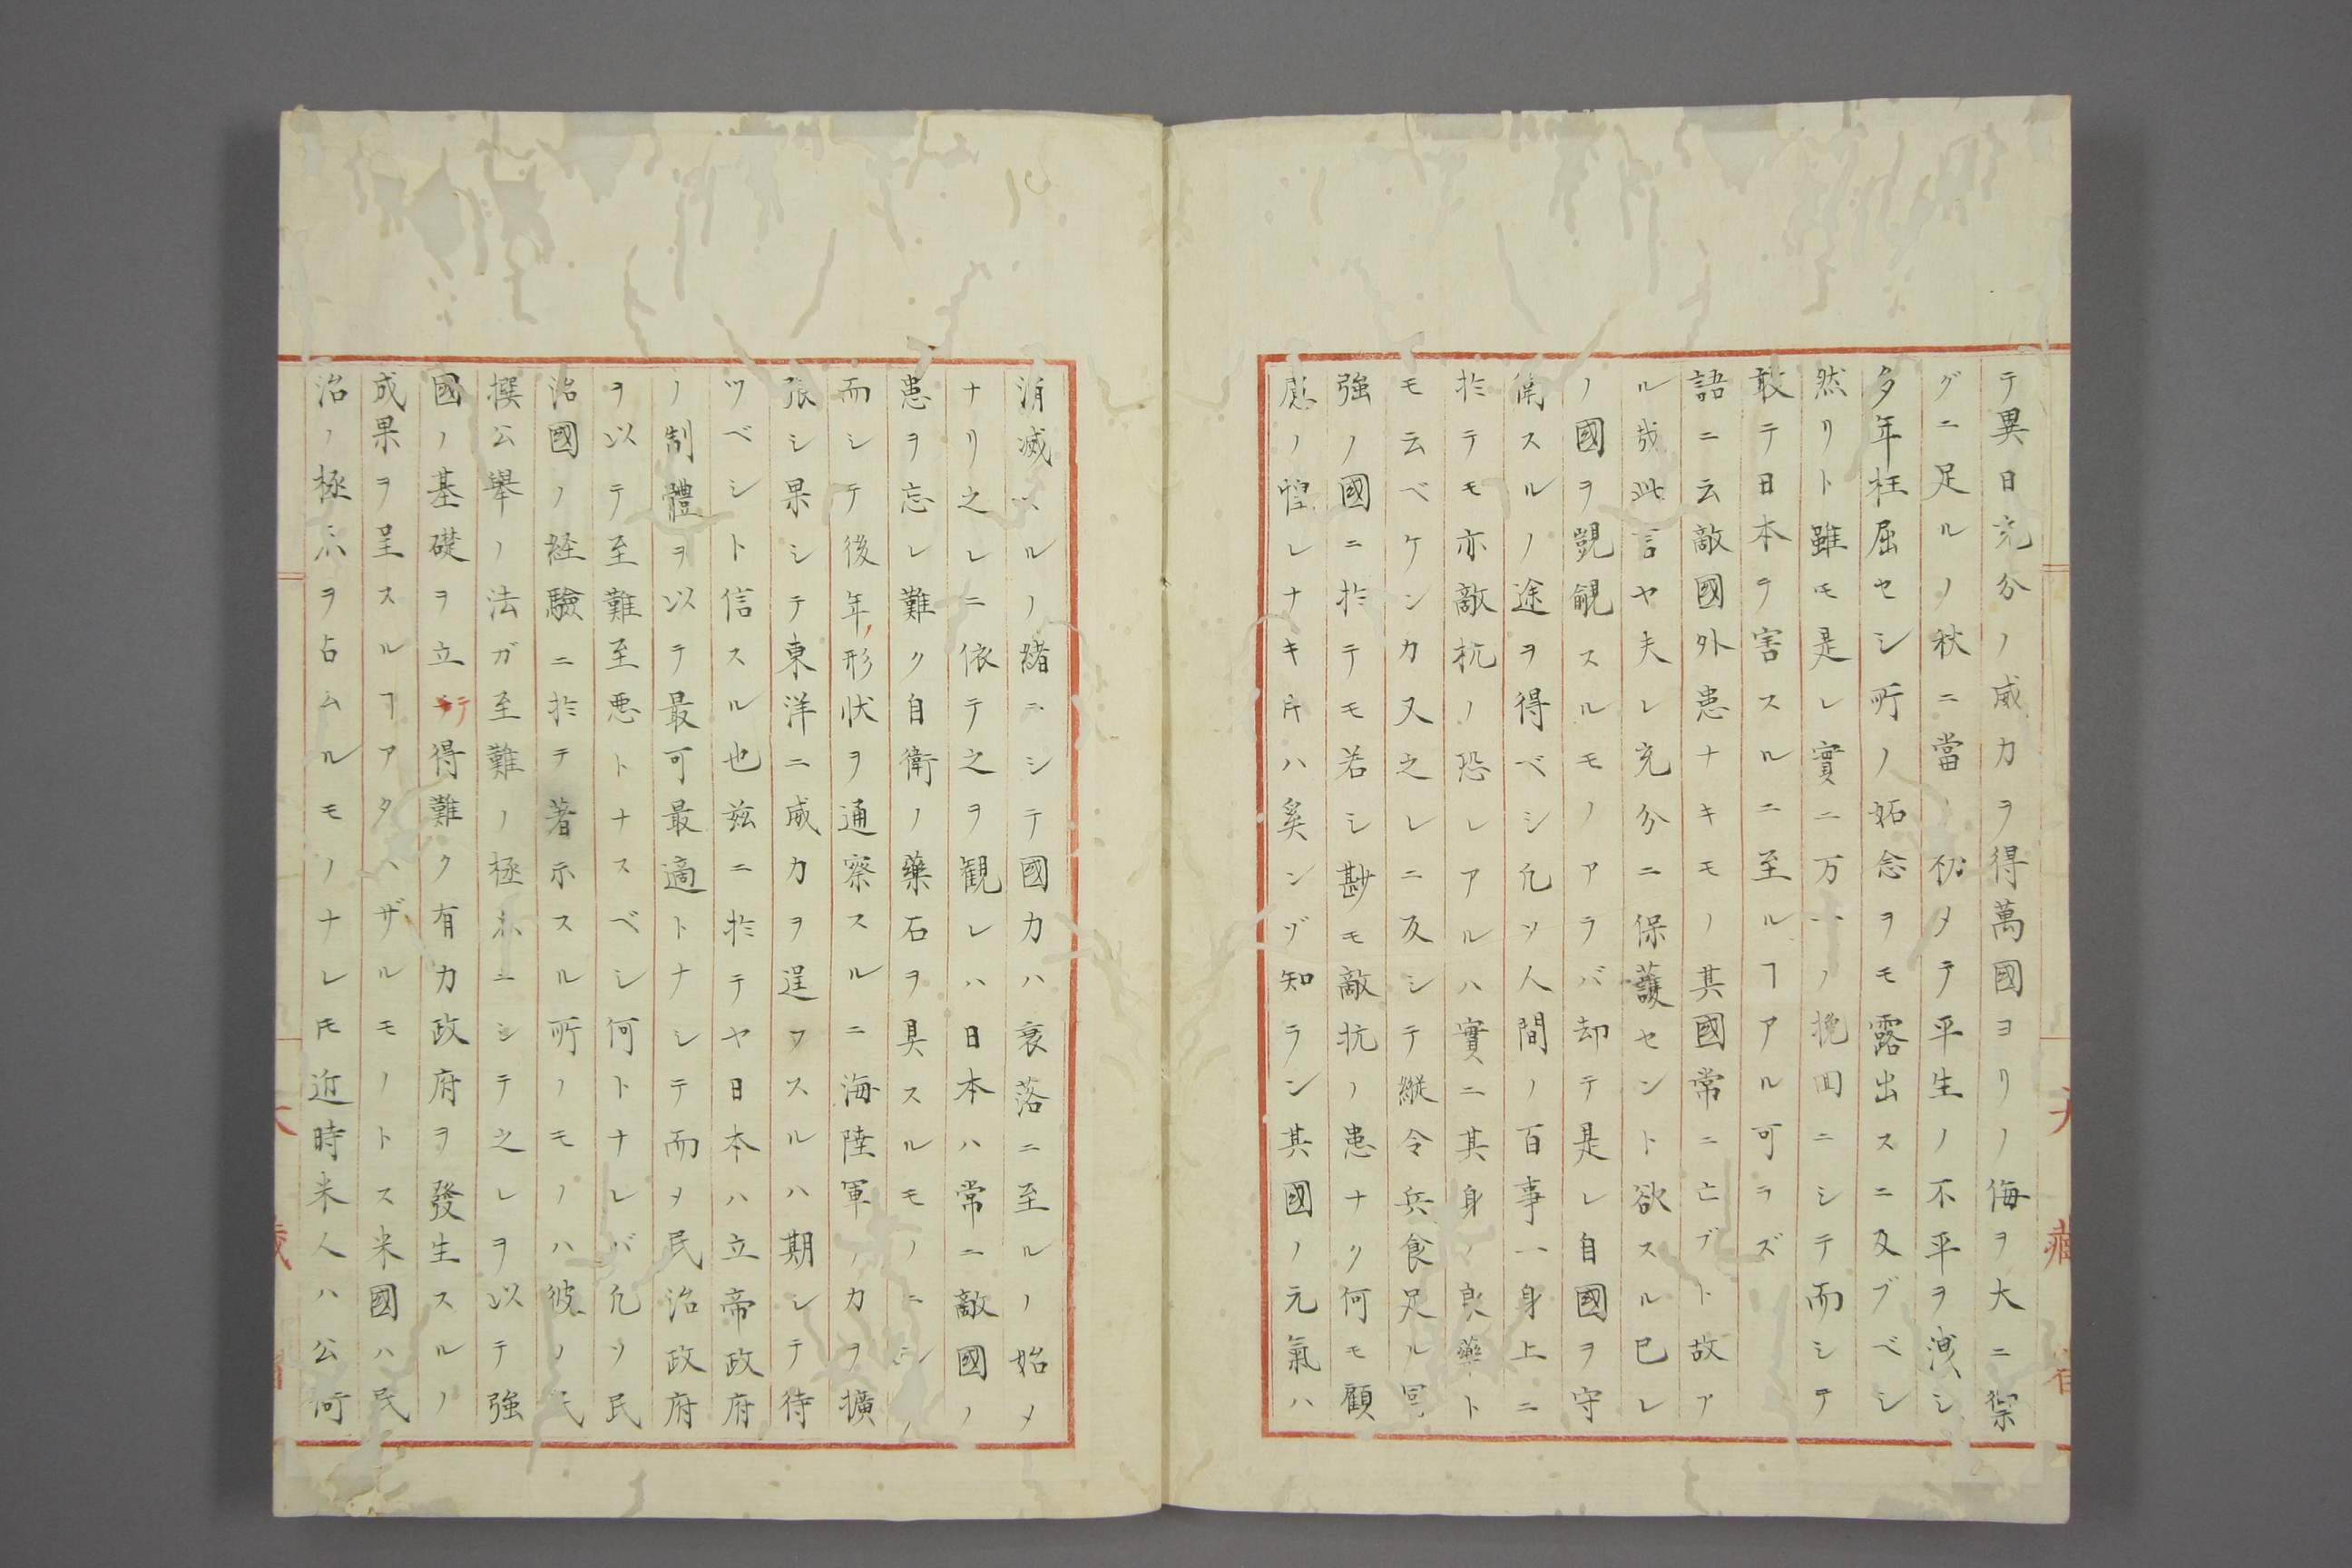 テ異日充分ノ威力ヲ得萬國ヨリノ侮ヲ大ニ禦
グニ足ルノ秋ニ當リ初メテ平生ノ不平ヲ洩シ
多年枉屈セシ所ノ妬念ヲモ露出スニ及ブベシ
然リト雖モ是レ實ニ万一ノ挽回ニシテ而シテ
敢テ日本ヲ害スルニ至ルヿアル可ラズ
語ニ云敵國外患ナキモノ其國常ニ亡ブト故ア
ル哉此言ヤ夫レ充分ニ保護セント欲スル已レ
ノ國ヲ覬覦スルモノアラバ却テ是レ自國ヲ守
衛スルノ途ヲ得ベシ凡ソ人間ノ百事一身上ニ
於テモ亦敵抗ノ恐レアルハ實ニ其身ノ良藥ト
モ云ベケンカ又之レニ反シテ縦令兵食足ル冨
強ノ國ニ於テモ若シ尠モ敵抗ノ患ナク何モ顧
慮ノ惶レナキ片ハ奚ンゾ知ラン其國ノ元氣ハ
消滅スルノ緒ニシテ國力ハ衰落ニ至ルノ始メ
ナリ之レニ依テ之ヲ観レハ日本ハ常ニ敵國ノ
患ヲ忘レ難ク自衛ノ藥石ヲ具スルモノニシ
而シテ後年形状ヲ通察スルニ海陸軍ノ力ヲ擴
張シ果シテ東洋ニ威力ヲ逞フスルハ期シテ待
ツベシト信スル也玆ニ於テヤ日本ハ立帝政府
ノ制體ヲ以テ最可最適トナシテ而メ民治政府
ヲ以テ至難至悪トナスベシ何トナレバ凡ソ民
治國ノ経驗ニ於テ著示スル所ノモノハ彼ノ民
撰公舉ノ法ガ至難ノ極ニシテ之レヲ以テ強
國ノ基礎ヲ立テ得難ク有力政府ヲ發生スルノ
成果ヲ呈スルヿアタハザルモノトス米國ハ民
治ノ極示ヲ占ムルモノナレ𪜈近時米人ハ公何